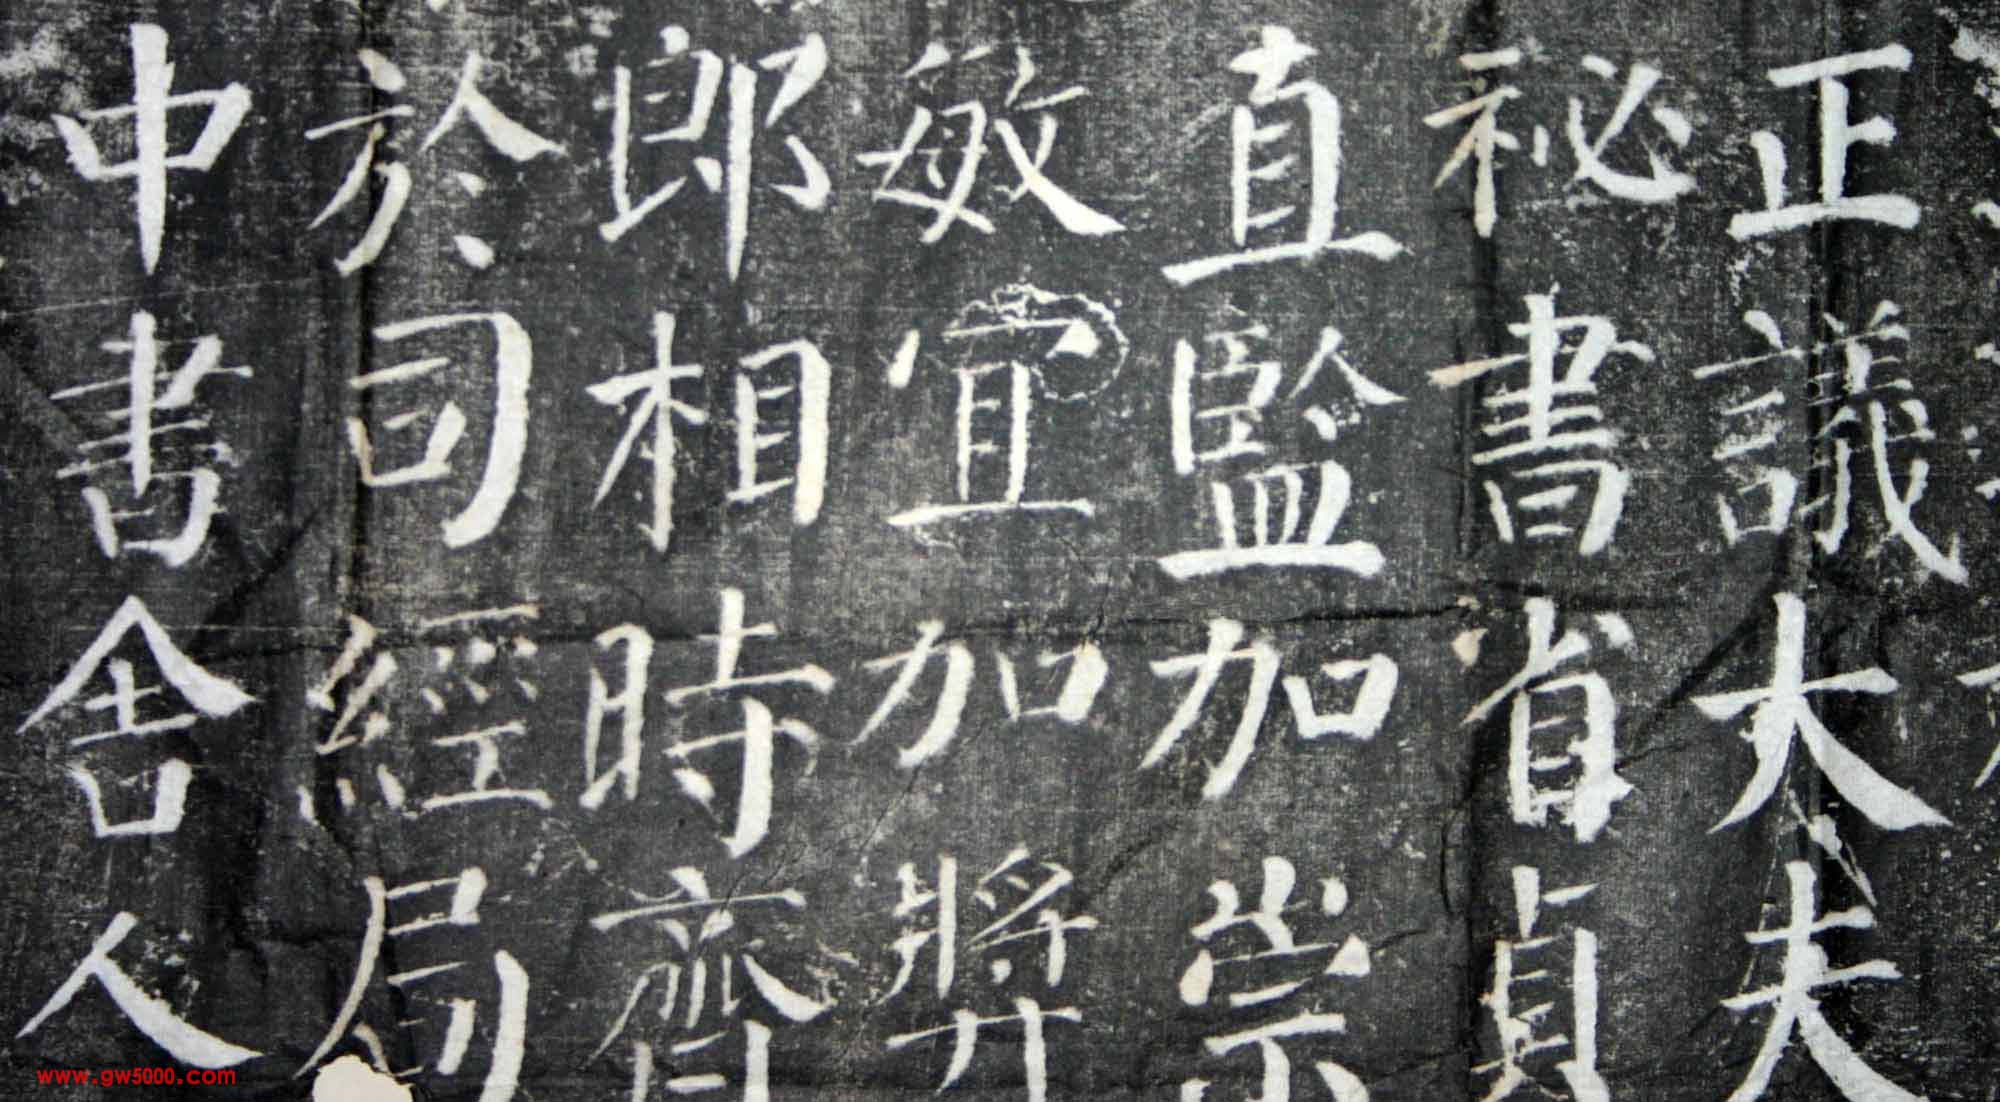 正議大夫
秘書省貞
直監加崇
敏宜加獎
郎相時齊
於司經局
中書舍人
www.gw5000.com